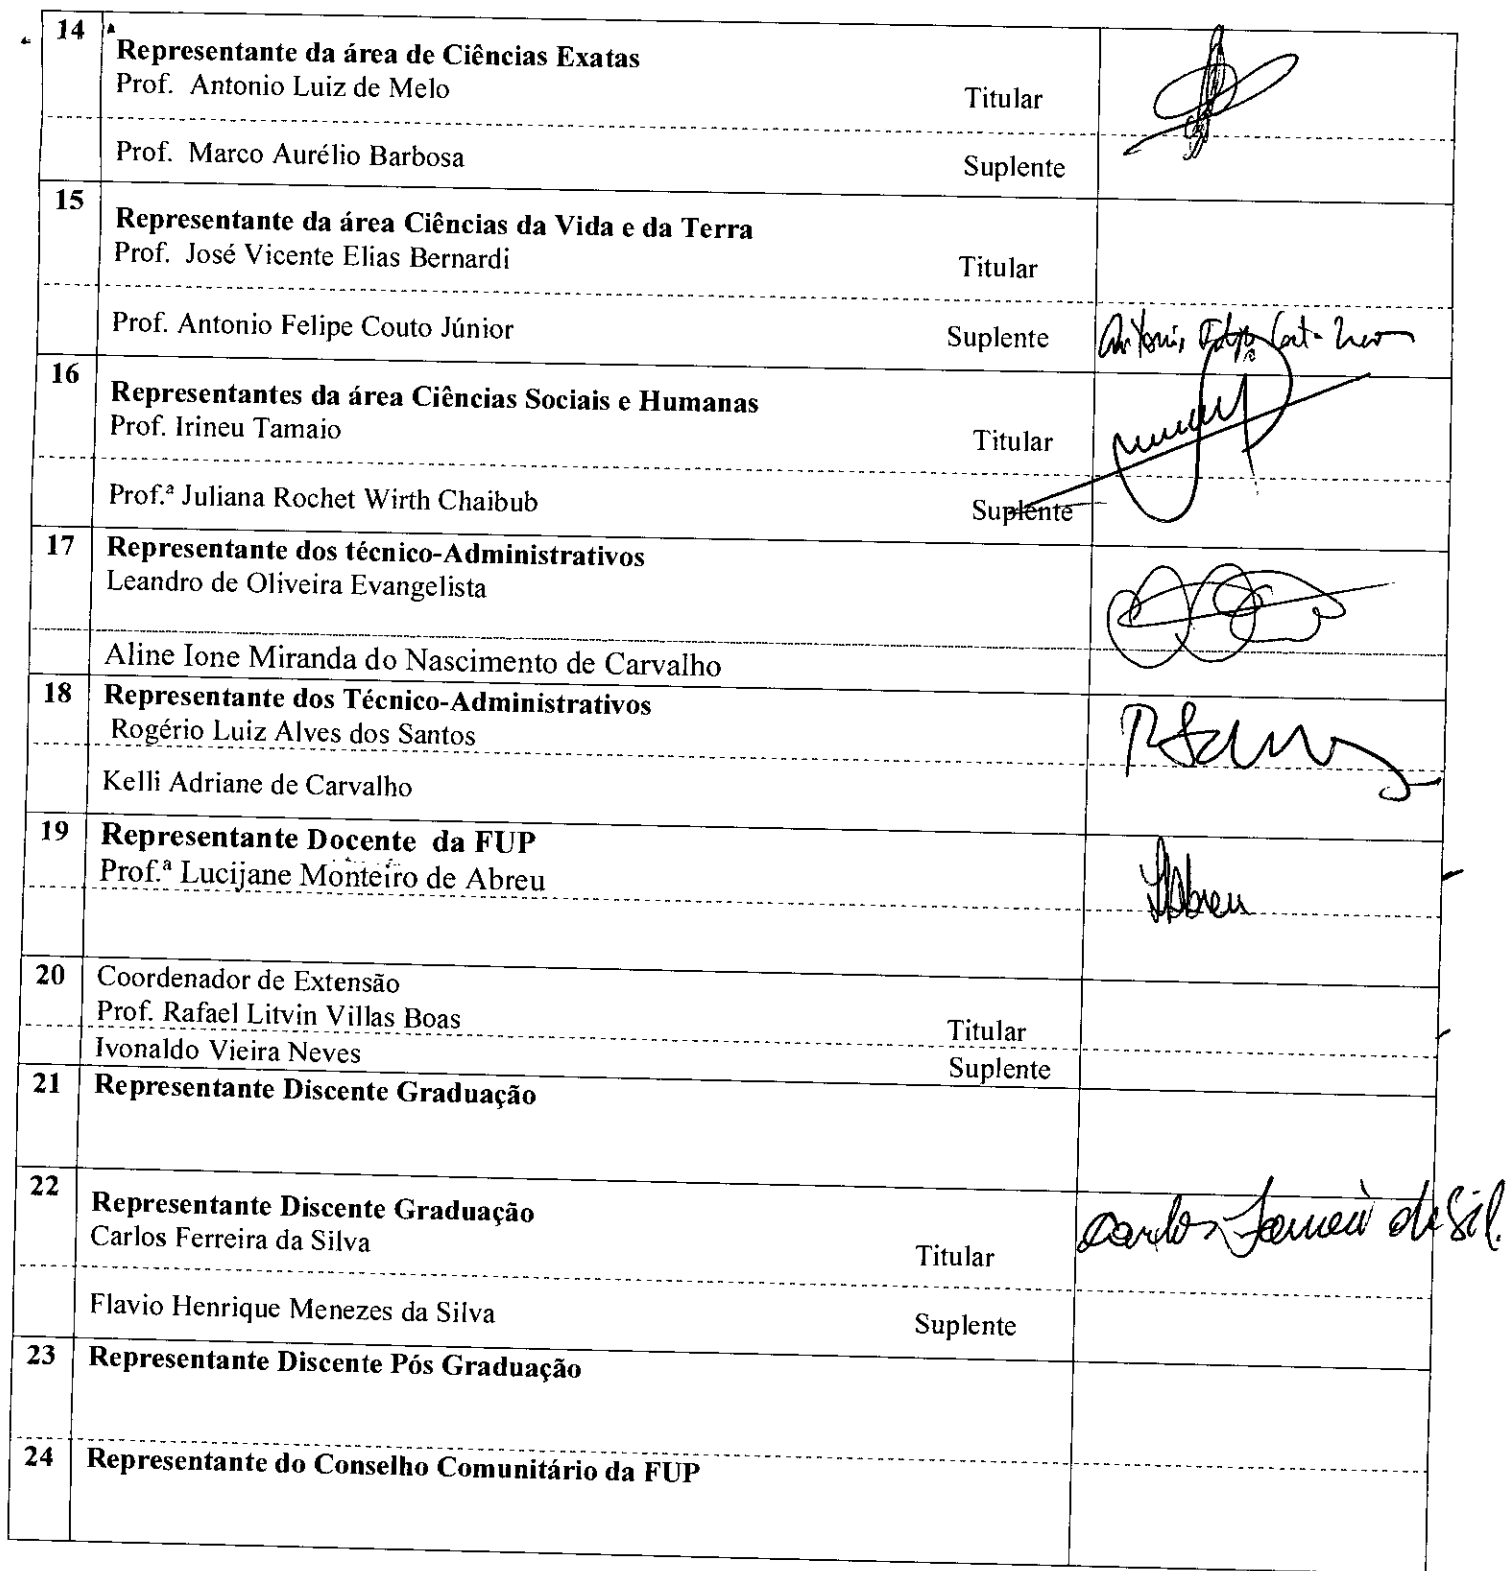 14
Representante da área de Ciências Exatas
Prof. Antonio Luiz de Melo Titular
Prof. Marco Aurélio Barbosa Suplente
15
Representante da área Ciências da Vida e da Terra
Prof. José Vicente Elias Bernardi Titular
Prof. Antonio Felipe Couto Júnior Suplente
16
Representantes da área Ciências Sociais e Humanas
Prof. Irineu Tamaio Titular
Prof.ª Juliana Rochet Wirth Chaibub Suplente
17 Representante dos técnico-Administrativos
Leandro de Oliveira Evangelista
Aline Ione Miranda do Nascimento de Carvalho
18 Representante dos Técnico-Administrativos
Rogério Luiz Alves dos Santos
Kelli Adriane de Carvalho
19 Representante Docente da FUP
Prof.ª Lucijane Monteiro de Abreu
20 Coordenador de Extensão
Prof. Rafael Litvin Villas Boas Titular
Ivonaldo Vieira Neves Suplente
21 Representante Discente Graduação
22
Representante Discente Graduação
Carlos Ferreira da Silva Titular Carlos
Flavio Henrique Menezes da Silva Suplente
23 Representante Discente Pós Graduação
24 Representante do Conselho Comunitário da FUP